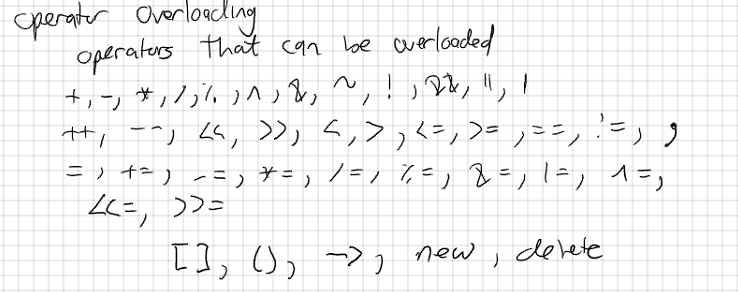 operator overloading
operators that can be overloaded
+, -, *, /, %, ^, &, ~, !, &&, ||, |
++, --, <<, >>, <, >, <=, >=, ==, !=, ,
=, +=, -=, *=, /=, %=, &=, |=, ^=,
<<=, >>=
[], (), ->, new, delete